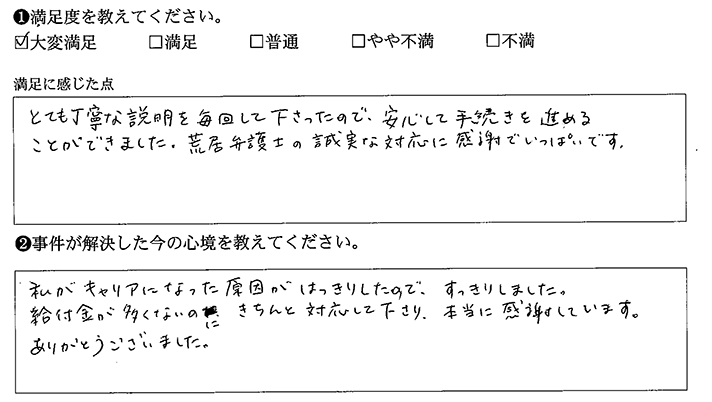 ❶満足度を教えてください。
☑大変満足 □満足 □普通 □やや不満 □不満
満足に感じた点
とても丁寧な説明を毎回して下さったので、安心して手続きを進める
ことができました。荒居弁護士の誠実な対応に感謝でいっぱいです。
❷事件が解決した今の心境を教えてください。
私がキャリアになった原因がはっきりしたので、すっきりしました。
給付金が多くないのに きちんと対応して下さり、本当に感謝しています。
ありがとうございました。